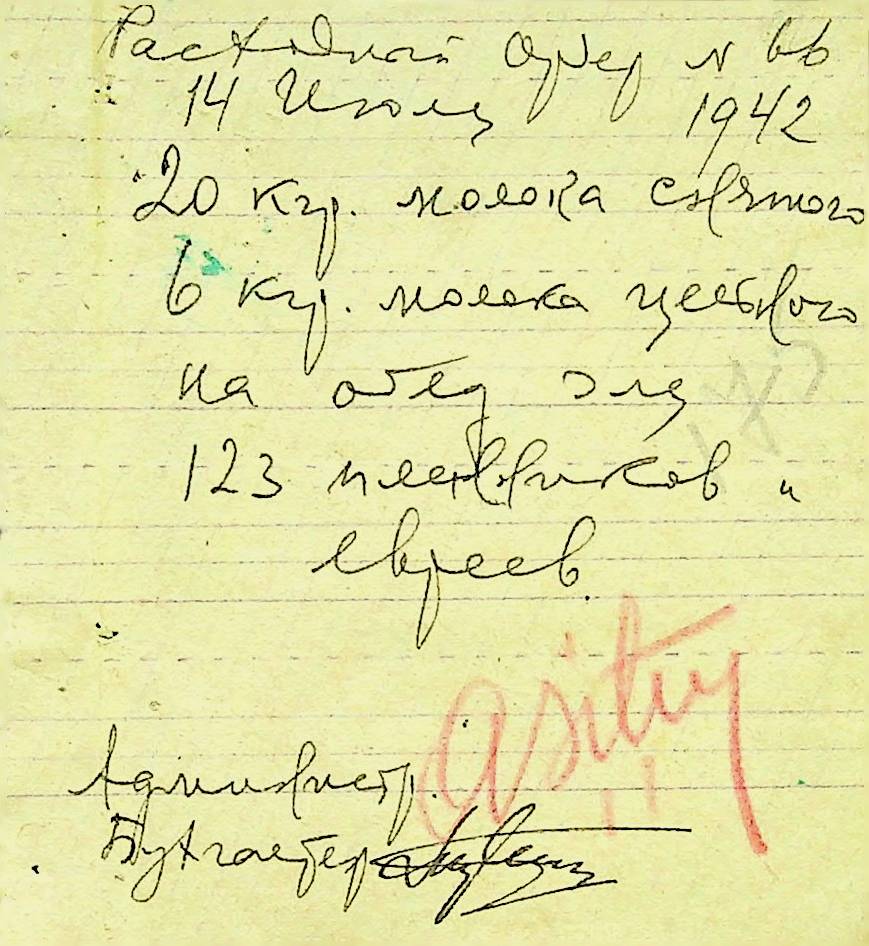 Расходный Ордер N 66
14 Июля 1942
20 кгр. молока снятого
6 кгр. молока цельного
на обед для
123 пленников и
евреев.
Администр.
Бухгалтер